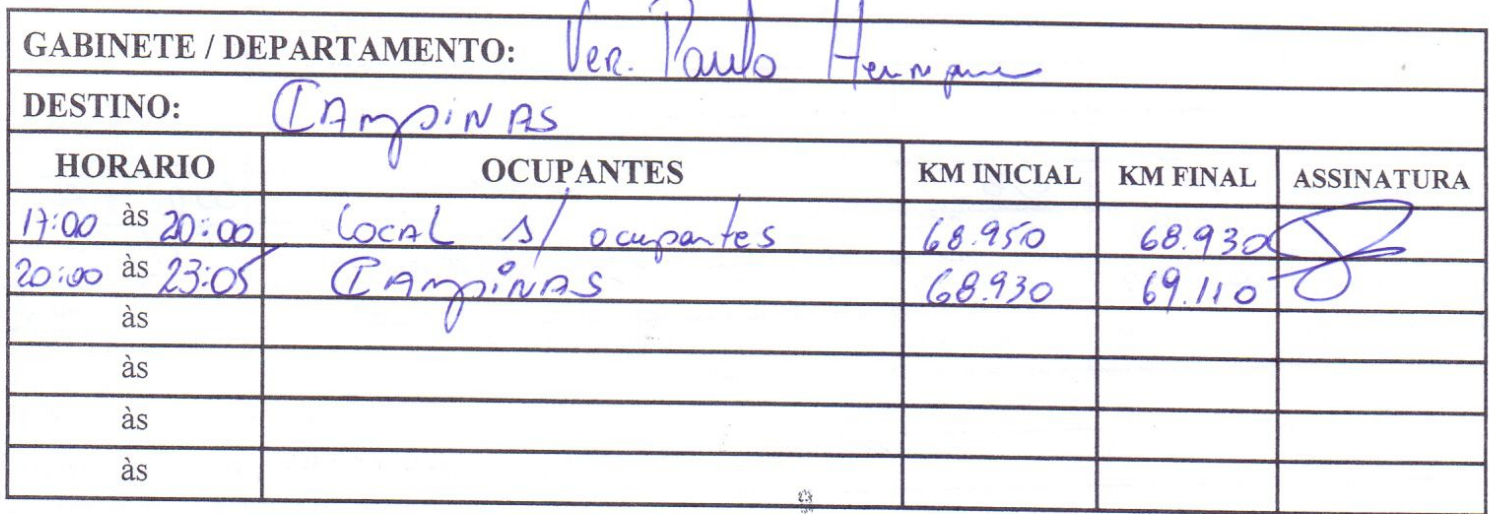 GABINETE / DEPARTAMENTO: Ver. Paulo
DESTINO: CAMPINAS
HORARIO OCUPANTES KM INICIAL KM FINAL ASSINATURA
17:00 às 20:00 LOCAL s/ ocupantes 68.950 68.930
20:00 às 23:05 CAMPINAS 68.930 69.110
às
às
às
às